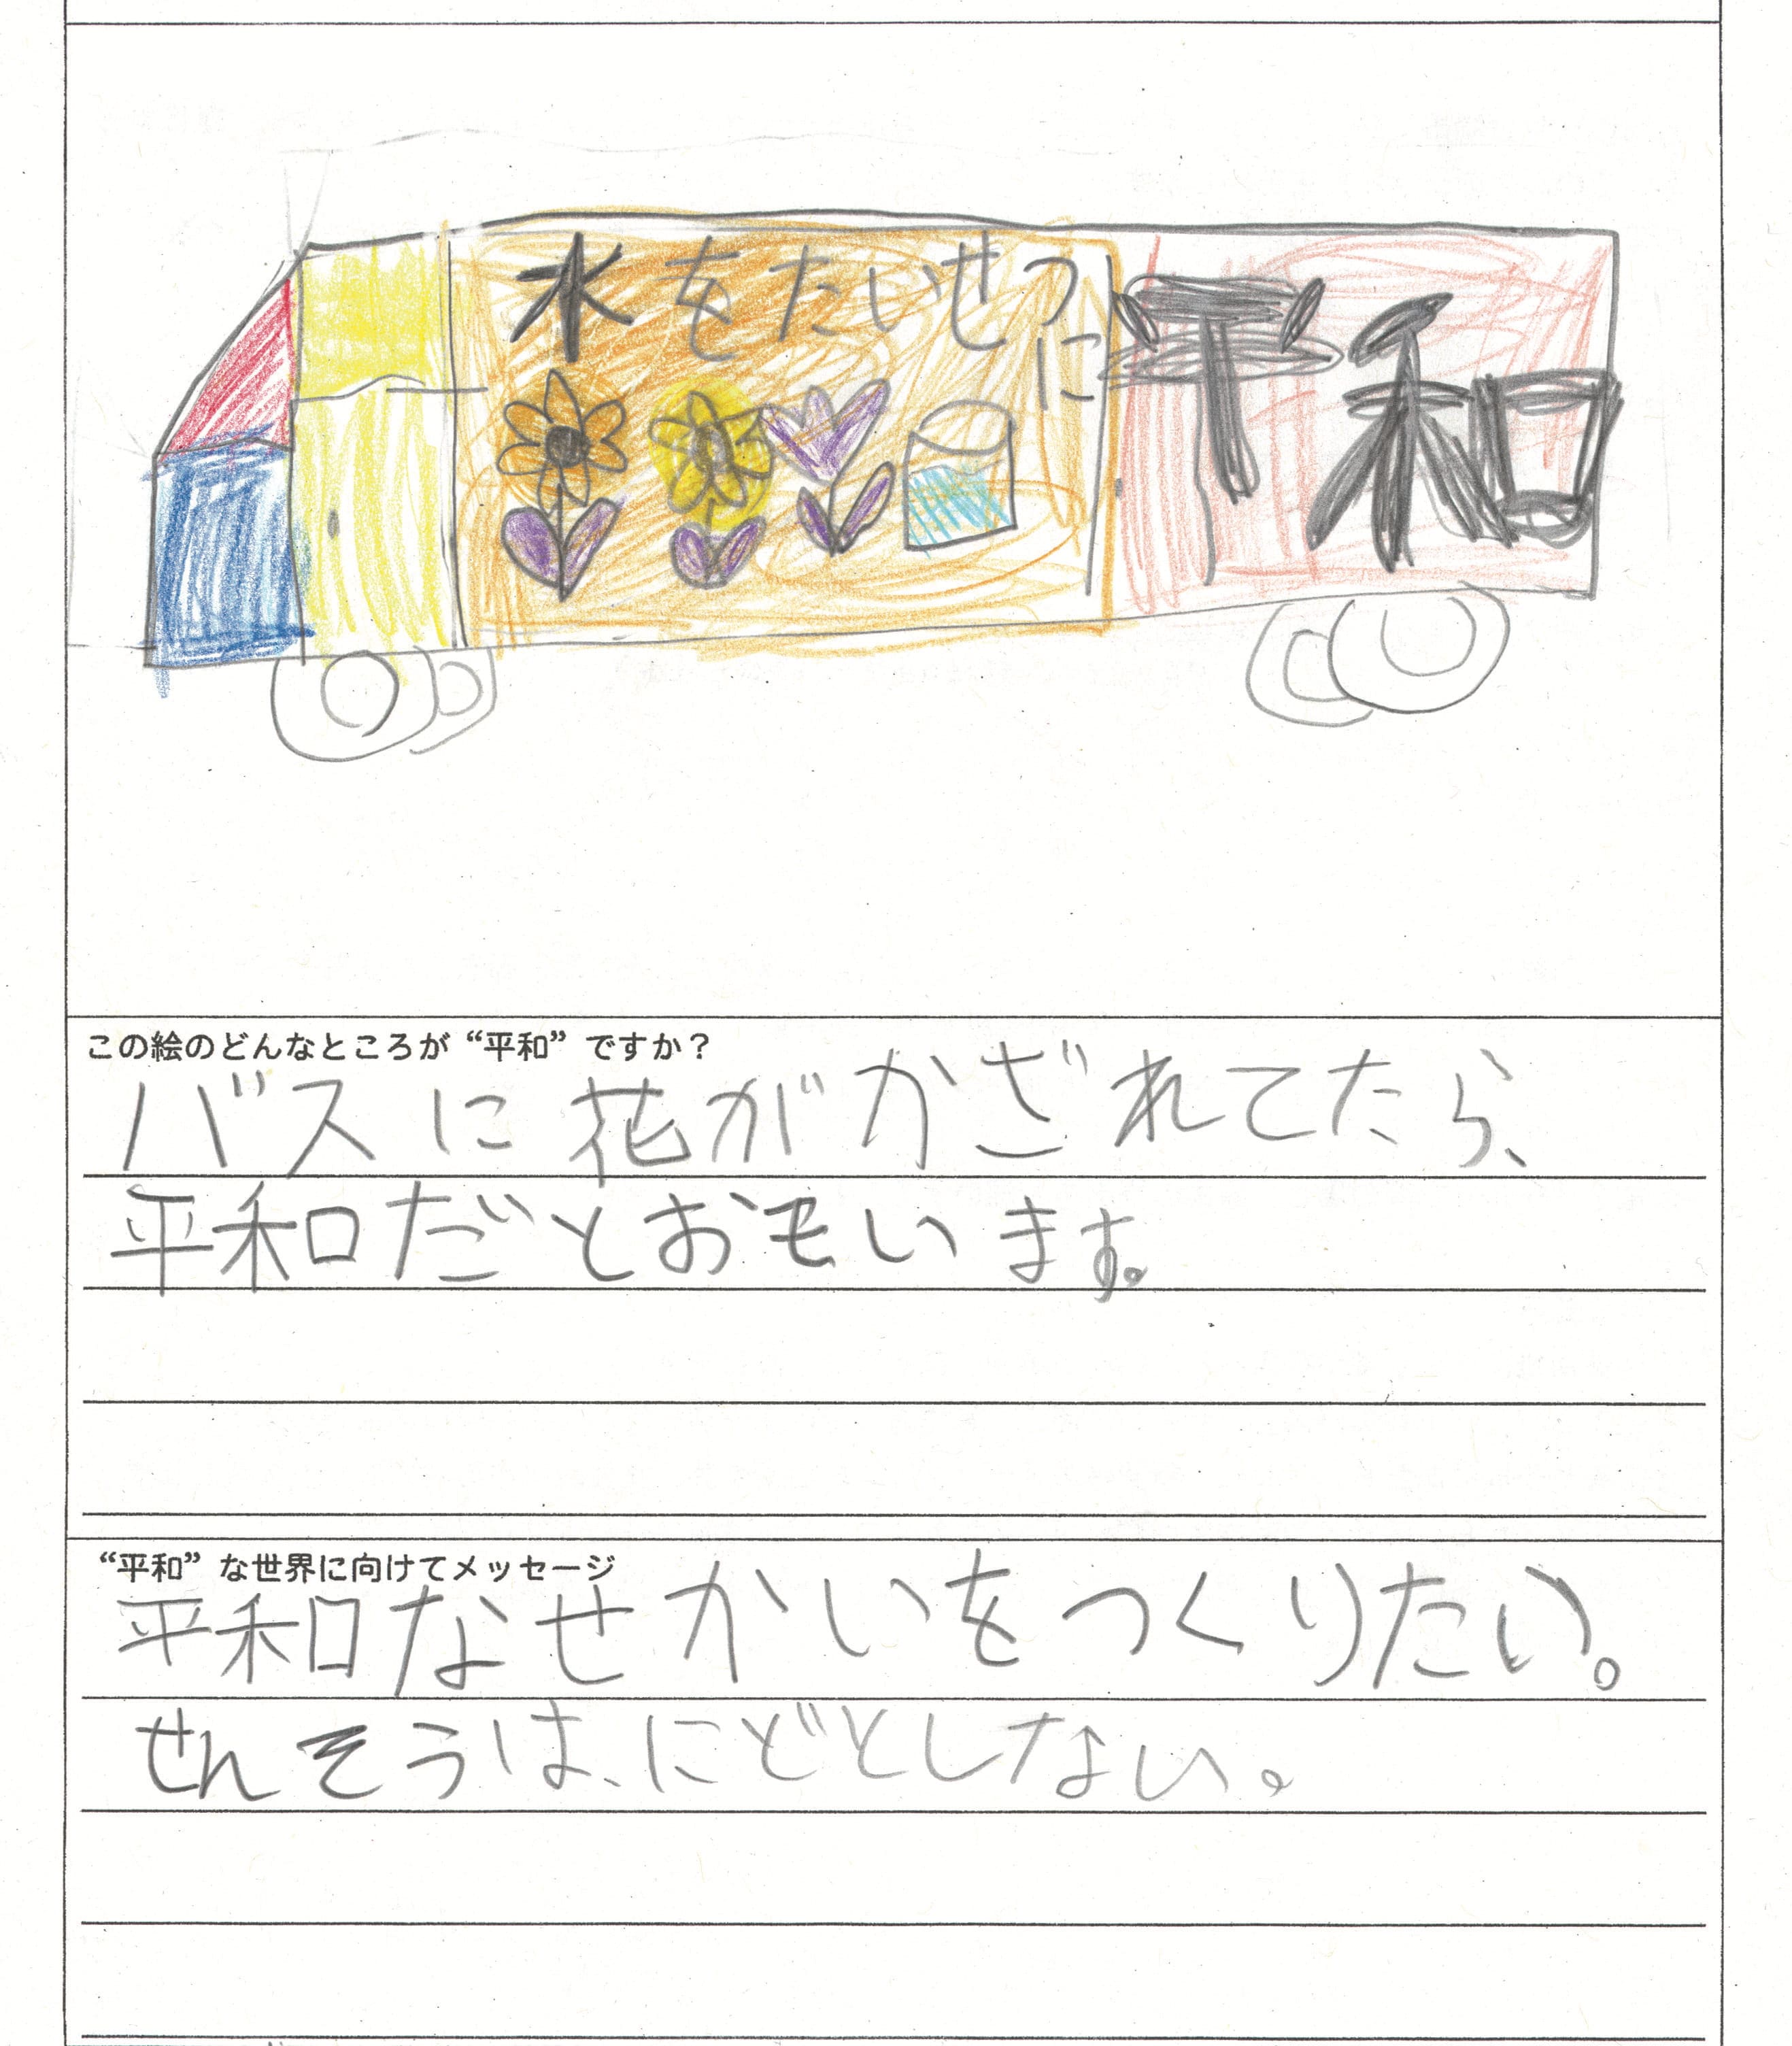 水をたいせつに
平和
この絵のどんなところが“平和”ですか？
バスに花がかざれてたら、
平和だとおモいます。
“平和”な世界に向けてメッセージ
平和なせかいをつくりたい。
せんそうは、にどとしない。